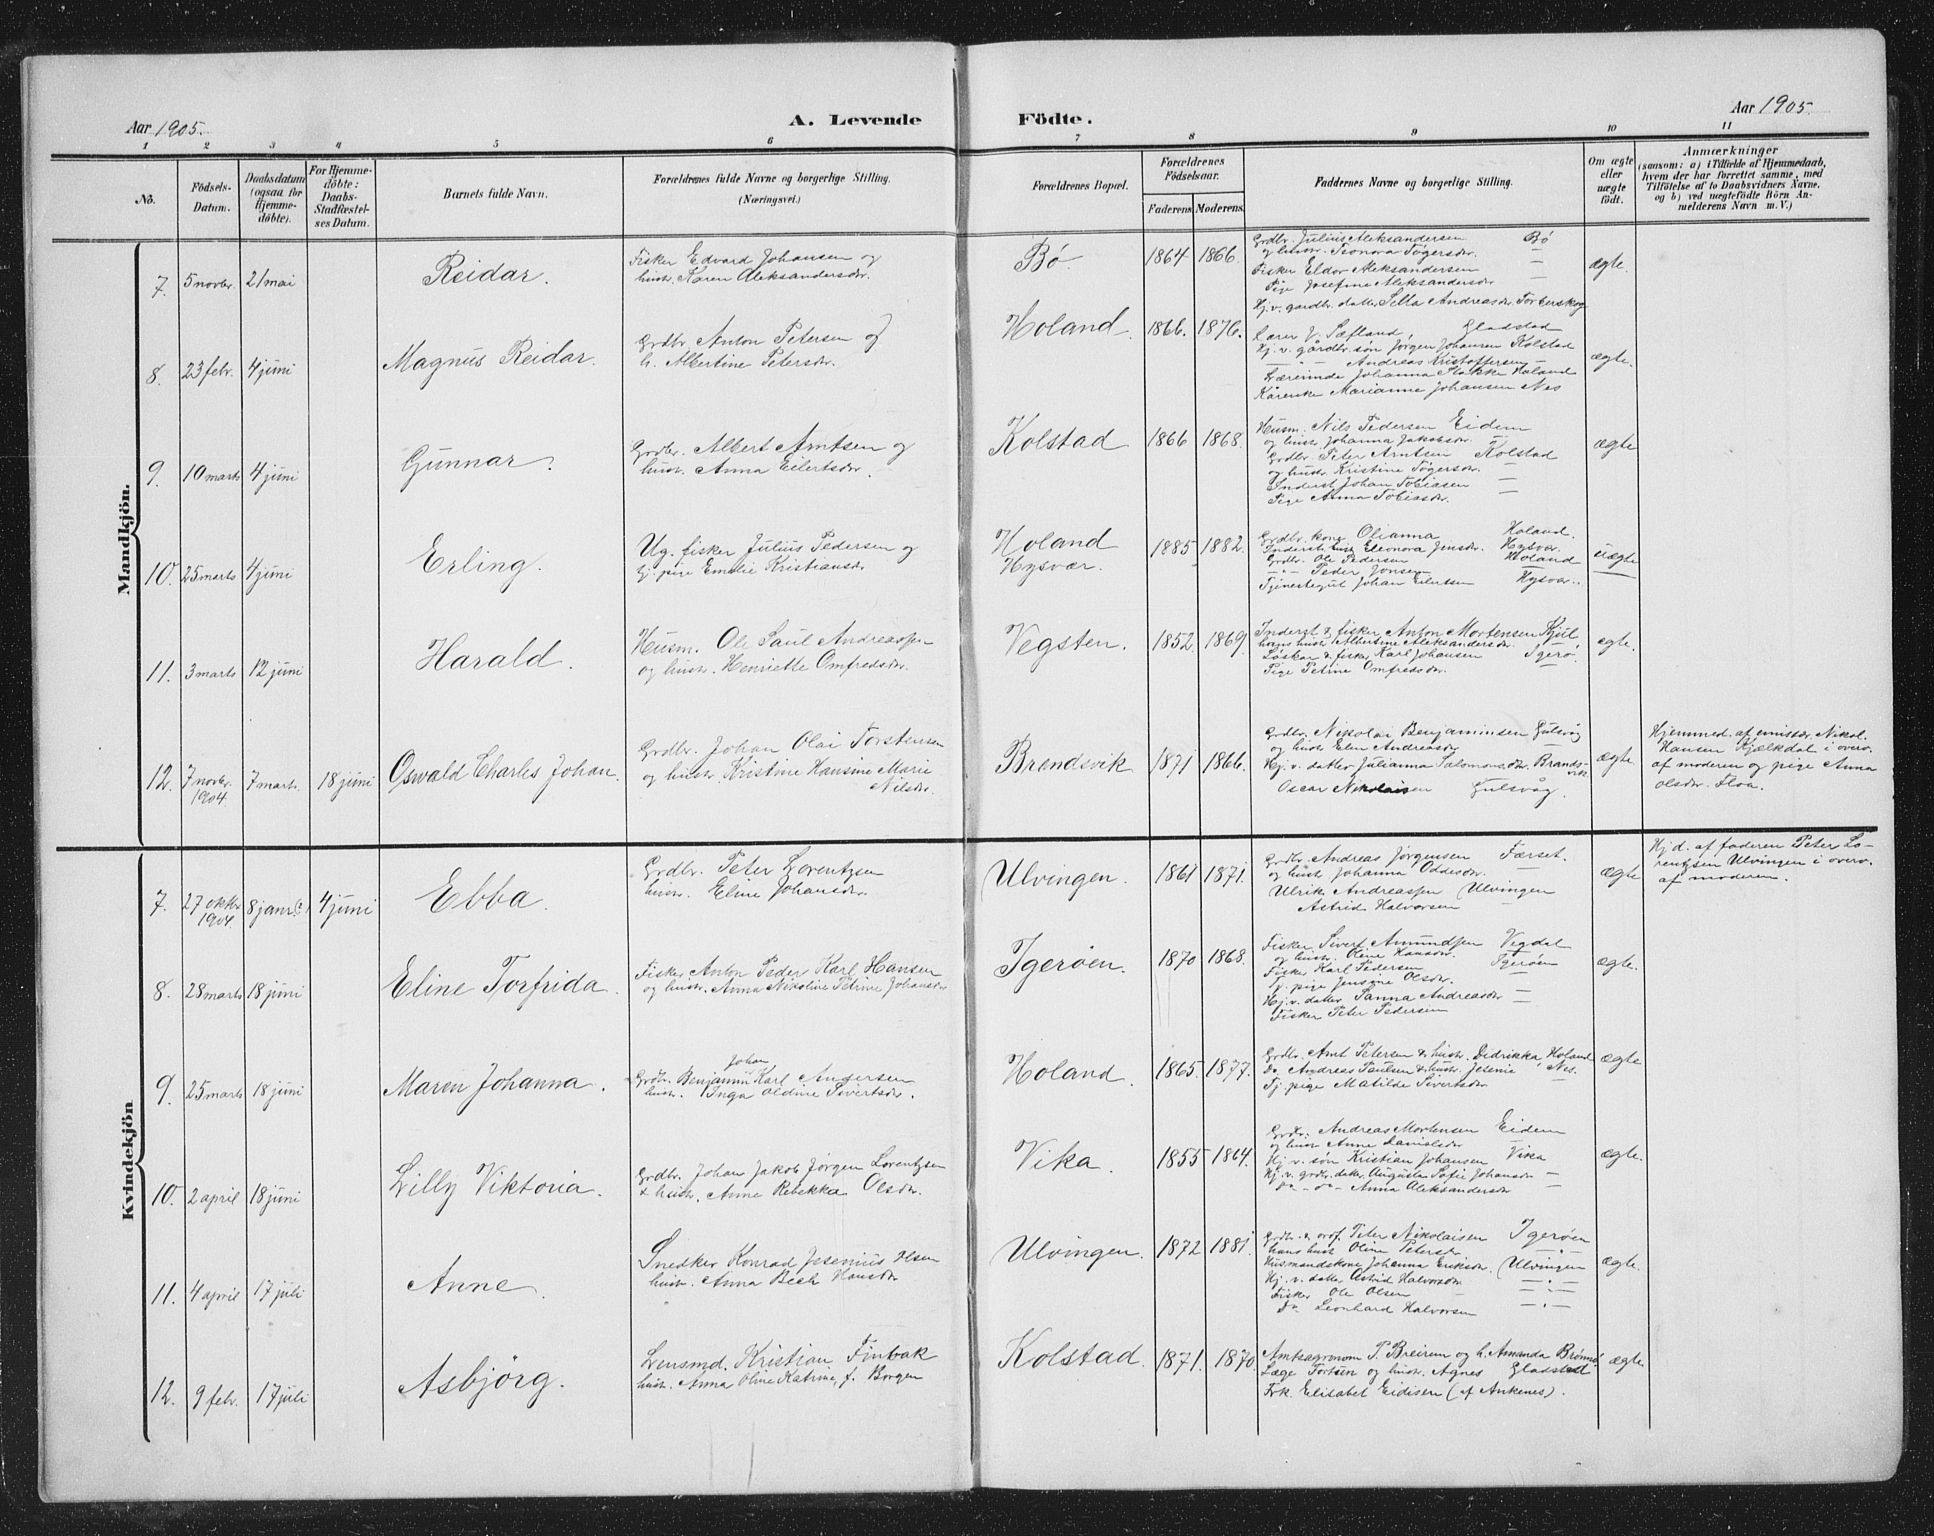 Aar 1905.
A. Levende
Födte.
Aar 1905.
1 2 3 4 5 6 7 8 9 10 11
No.
Födsels-
Datum.
Daabsdatum
(ogsaa for
Hjemme-
döbte).
For Hjemme-
döbte:
Daabs-
Stadfæstel-
ses Datum.
Barnets fulde Navn.
Forældrenes fulde Navne og borgerlige Stilling.
(Næringsvei.)
Forældrenes Bopæl.
Forældrenes
Födselsaar.
Faderens. Moderens.
Faddernes Navne og borgerlige Stilling.
Om ægte
eller
uægte
födt.
Anmærkninger
(saasom: a) i Tilfælde af Hjemmedaab,
hvem der har forrettet samme, med
Tilföielse af to Daabsvidners Navne,
og b) ved uægtefödte Börn An-
melderens Navn m. V.)
Mandkjön.
7. 5 novbr. 21 mai
Reidar.
Fisker Edvard Johansen og
hustr. Karen Aleksandersdr.
Bö.
1864 1866.
Grdbr. Julius Aleksandersen Bö
og hustr. Leonora Tögersdr. —
Fisker Eldor Aleksandersen —
Pige Josefine Aleksandersdr —
ægte.
8. 23 febr. 4 juni
Magnus Reidar.
Grdbr. Anton Petersen og
h. Albertine Petersdr.
Holand.
1866. 1876.
Hj. v. gardbr. datter Sella Andreasdr.
Lærer J. Sæfland, Gladstad
Hj. v. gårdbr. søn Jørgen Johansen Kolstad
Andreas Kristoffersen —
Lærerinde Johanna Slakke Holand
Kårenke Marianne Johansen Nes
ægte.
9. 10 marts 4 juni
Gunnar.
Grdbr. Albert Arntsen og
hustr. Anna Eilertsdr.
Kolstad
1866 1868.
Husm. Nils Pedersen Eidem
og hustr. Johanna Jakobsdr. —
Grdbr. Peter Arntsen Kolstad
og hustr. Kristine Tögersdr. —
Inderst Johan Tobiasen —
Pige Anna Tobiasdr. —
ægte
10. 25 marts 4 juni
Erling.
Ug. fisker Julius Pedersen og
Tj. pige Emelie Kristiansdr.
Holand
Hysvær.
1885 1882.
Grdbr. kone Olianna Holand.
Inderst hust Eleonora Jensdr. Hysvær
Grdbr. Ole Pedersen Holand
Peder Jonsen —
Tjenestegut Johan Eilertsen Hysvær.
uægte
11. 3 marts 12 juni
Harald.
Husm. Ole Paul Andreassen
og hustr. Henriette Omfredsdr.
Vegsten.
1852. 1869.
Inderst & fisker Anton Mortensen Kjul
hans hust. Albertine Aleksandersdr.
Løskar & fisker Karl Johansen Igerø.
Pige Petrine Omfredsdr.
ægte.
12. 7 novbr. 1904. 7 marts 18 juni
Oswald Charles Johan.
Grdbr. Johan Olai Torstensen
og hustr. Kristine Hansine Marie
Nilsdr.
Brendsvik
1871 1866.
Grdbr. Nikolai Benjaminsen Gulsvåg
og hustr. Elen Andreasdr —
Hj. v. datter Julianna Salomonsdr. Brands-
vik
Oscar Nikolaisen Gulsvåg.
ægte
Hjemmed. af emissær Nikol.
Hansen Kjelkdal i overv.
af moderen og pige Anna
Olsdr. Floa.
Kvindekjön
7. 27 oktbr 1904. 8 janr(?) 4 juni
Ebba.
Grdbr. Peter Lorentzsen
hustr. Eline Johansdr.
Ulvingen.
1861 1871.
Grdbr. Andreas Jørgensen Færset.
og hust. Johanna Oddesdr. —
Ulrik Andreassen Ulvingen
Astrid Halvorsen —
ægte
Hj d. af faderen Peter Lo-
rentzsen Ulvingen i overv.
af moderen.
8. 28 marts 18 juni
Eline Torfrida.
Fisker Anton Peder Karl Hansen
og hustr. Anna Nikoline Petrine Johansdr
Igerøen.
1870 1868.
Fisker Sivert Amundsen Vegdal
og hustr. Oline Hansdr. Igerøen
Fisker Karl Pedersen —
Tj. pige Jensine Olsdr. —
Hj. v. datter Sanna Andreasdr —
Fisker Peter Pedersen —
ægte.
9. 25 marts 18 juni
Maren Johanna.
Johan
Grdbr. Benjamin Karl Andersen
hustr. Inga Oldine Sivertsdr.
Holand.
1865. 1877.
Grdbr. Arnt Petersen & hustr. Didrikka, Holand
Do Andreas Paulsen & hustr. Jesenie, Nes.
Tj. pige Matilde Sivertsdr —
ægte
10. 2 april 18 juni
Lilly Viktoria.
Grdbr. Johan Jakob Jørgen Lorentzsen
& hustr. Anne Rebekka Olsdr.
Vika.
1855 1864.
Grdbr. Andreas Mortensen Eidem
og hust Anne Danielsdr —
Hj. v. søn Kristian Johansen Vika
Hj. v. grdbr datter Augusta Sofie Johansdr —
do – do – Anna Aleksandersdr —
ægte.
11. 4 april 17 juli
Anne.
Snedker Konrad Jesenius Olsen
hustr. Anna Bech Hansdr
Ulvingen.
1872 1881.
Grdbr. & prof. Peter Nikolaisen Igerøen
hans hust Oline Petersdr — " —
Husmandskone Johanna Eriksdr. Ulvingen
Hj. v. datter Astrid Halvorsdr — " —
Fisker Ole Olsen — " —
do Leonhard Halvorsen — " —
ægte.
12. 9 febr. 17 juli
Asbjörg.
Lensmd. Kristian Finbak
hustr. Anna Oline Katrine, f. Borgen
Kolstad.
1871. 1870
Amtsagronom P. Breirem og h. Amanda Brønnø
Læge Tortsen og hustr. Agnes Gladstad
Frk. Elisabet Eidisen (af Ankenes).
ægte